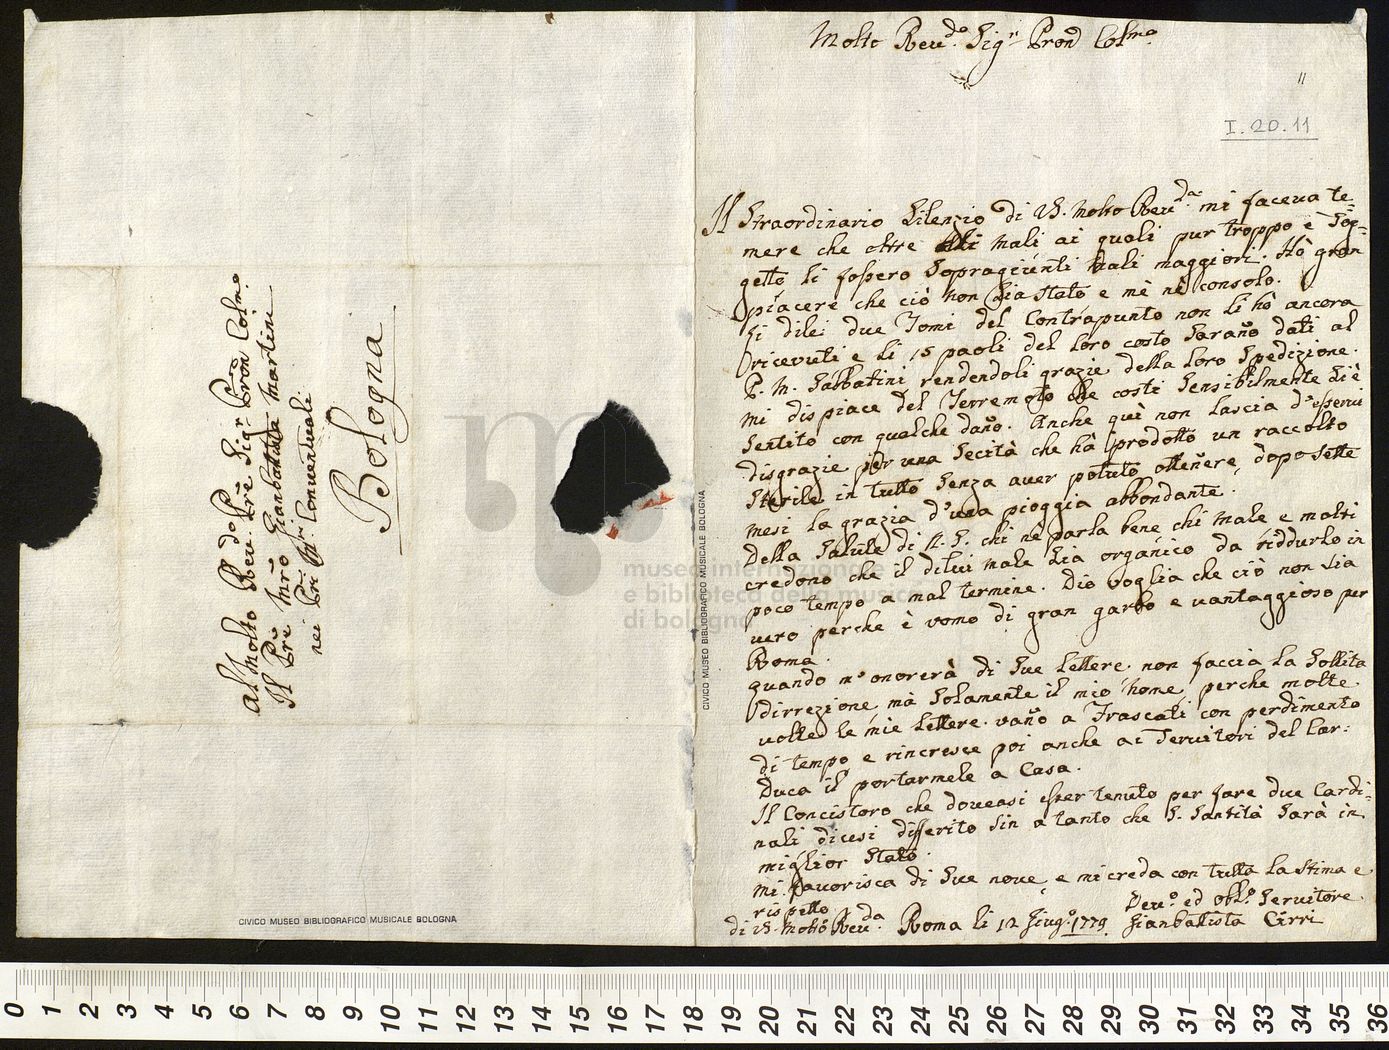 Molto Rev.do Sig.r Pron Col.mo
11
I. 20. 11
Il Straordinario Silenzio di V.S. Molto Rev.da mi faceva te=
mere che oltre alli mali ai quali pur troppo è Sog=
getto li fossero Sopragiunti mali maggiori. Hò gran
piacere che ciò non Sia Stato e mè nè consolo.
Li dilei due Tomi del Contrapunto non li hò ancora
ricevuti e li 15 paoli del loro costo Sarano dati al
P. M. Sabbatini rendendoli grazie della loro Spedizione.
mi dispiace del Terremoto che costi Sensibilmente Si è
Sentito con qualche dano. Anche quì non lascia d'esservi
disgrazie per una Secità che hà prodotto un raccolto
Sterile in tutto Senza aver potuto ottenere, dopo Sette
mesi la grazia d'una pioggia abbondante.
Della Salute di N. S. chi nè parla bene chi male e molti
credono che il dilui male Sia organico da ridurlo in
poco tempo a mal termine. Dio voglia che ciò non Sia
vero perche è vomo di gran garbo e vantaggioso per
Roma.
quando m'onorerà di Sue lettere non faccia la Sollita
dirrezione mà Solamente il mio nome, perche molte
volte le mie lettere vano a Frascati con perdimento
di tempo e rincresce poi anche ai Servitori del Car:
Duca il portarmele a Casa.
Il Concistoro che doveasi esser tenuto per fare due Cardi=
nali dicesi differito Sin a tanto che S. Santità Sarà in
miglior Stato.
mi favorisca di Sue nove, e mi creda con tutta la Stima e
rispetto
di V.S. Molto Rev.da Roma li 12 Giug.o 1779
Dev.o ed obl.o Servitore
Gianbatista Cirri
Al Molto Rev.do Pre Sig.r Pron Col.mo
Il Pre Mro Gianbattista Martini
nei PP. M.ri Conventuali
Bologna
CIVICO MUSEO BIBLIOGRAFICO MUSICALE BOLOGNA
CIVICO MUSEO BIBLIOGRAFICO MUSICALE BOLOGNA
museo internazionale
e biblioteca della musica
di bologna
0 1 2 3 4 5 6 7 8 9 10 11 12 13 14 15 16 17 18 19 20 21 22 23 24 25 26 27 28 29 30 31 32 33 34 35 36